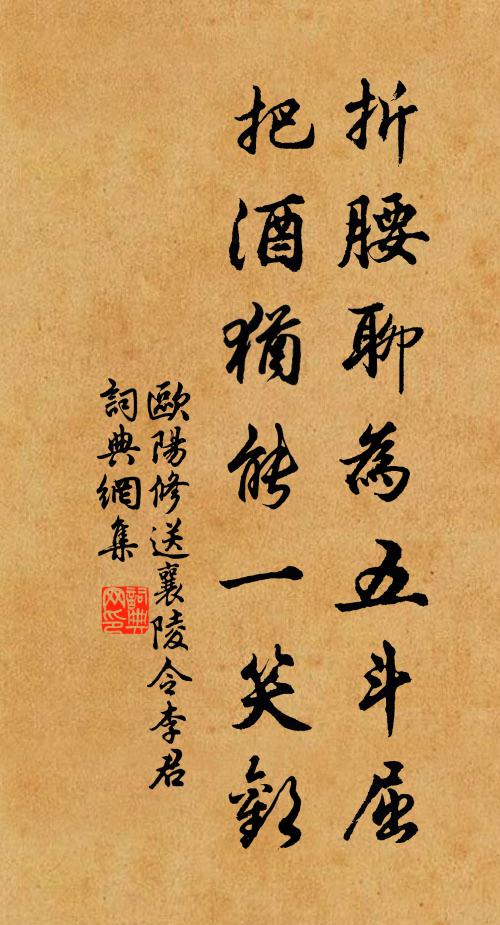 折腰聊為五斗屈
把酒猶能一笑歡
歐陽修送襄陵令李君
詞典網集
詞典网印